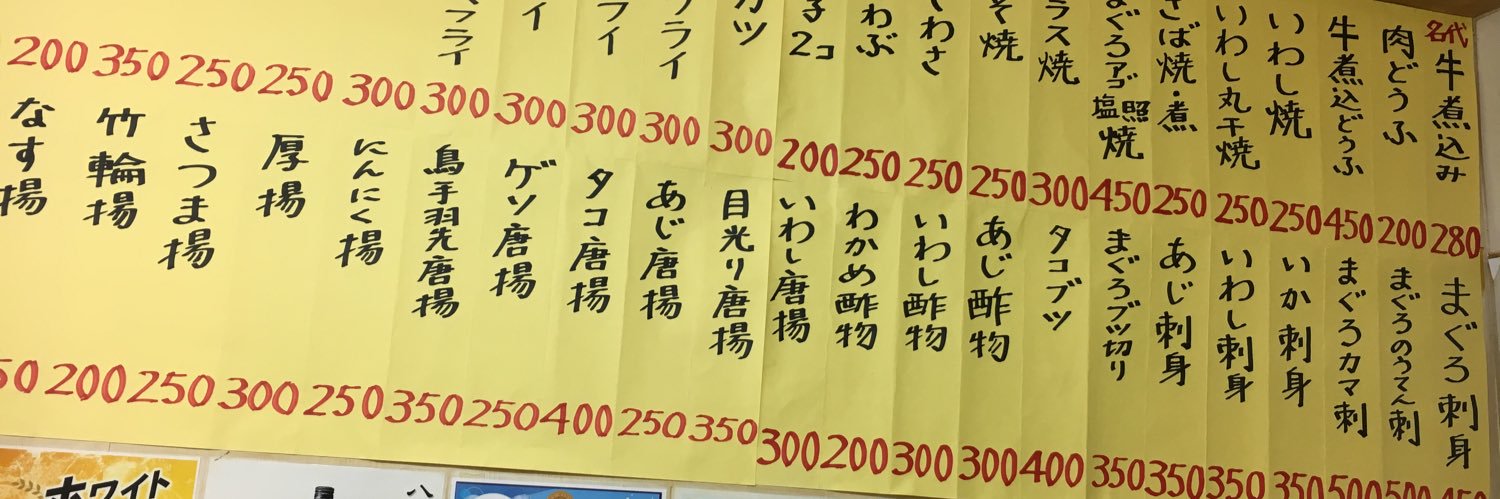 名代
牛煮込み
280
肉どうふ
200
牛煮込どうふ
450
いわし焼
250
いわし丸干焼
250
さば焼・煮
250
まぐろアゴ
塩照焼
450
ラス焼
300
そ焼
250
わさ
250
わぶ
250
子2コ
200
カツ
300
フライ
300
フライ
300
イ
300
フライ
300
300
250
250
350
200
まぐろ刺身
450
まぐろのうてん刺
500
まぐろカマ刺
500
いか刺身
350
いわし刺身
350
あじ刺身
350
まぐろブツ切り
350
タコブツ
400
あじ酢物
300
いわし酢物
300
わかめ酢物
200
いわし唐揚
300
目光り唐揚
350
あじ唐揚
250
タコ唐揚
400
ゲソ唐揚
250
鳥手羽先唐揚
350
にんにく揚
250
厚揚
300
さつま揚
250
竹輪揚
200
なす揚
50
ホワイト
八